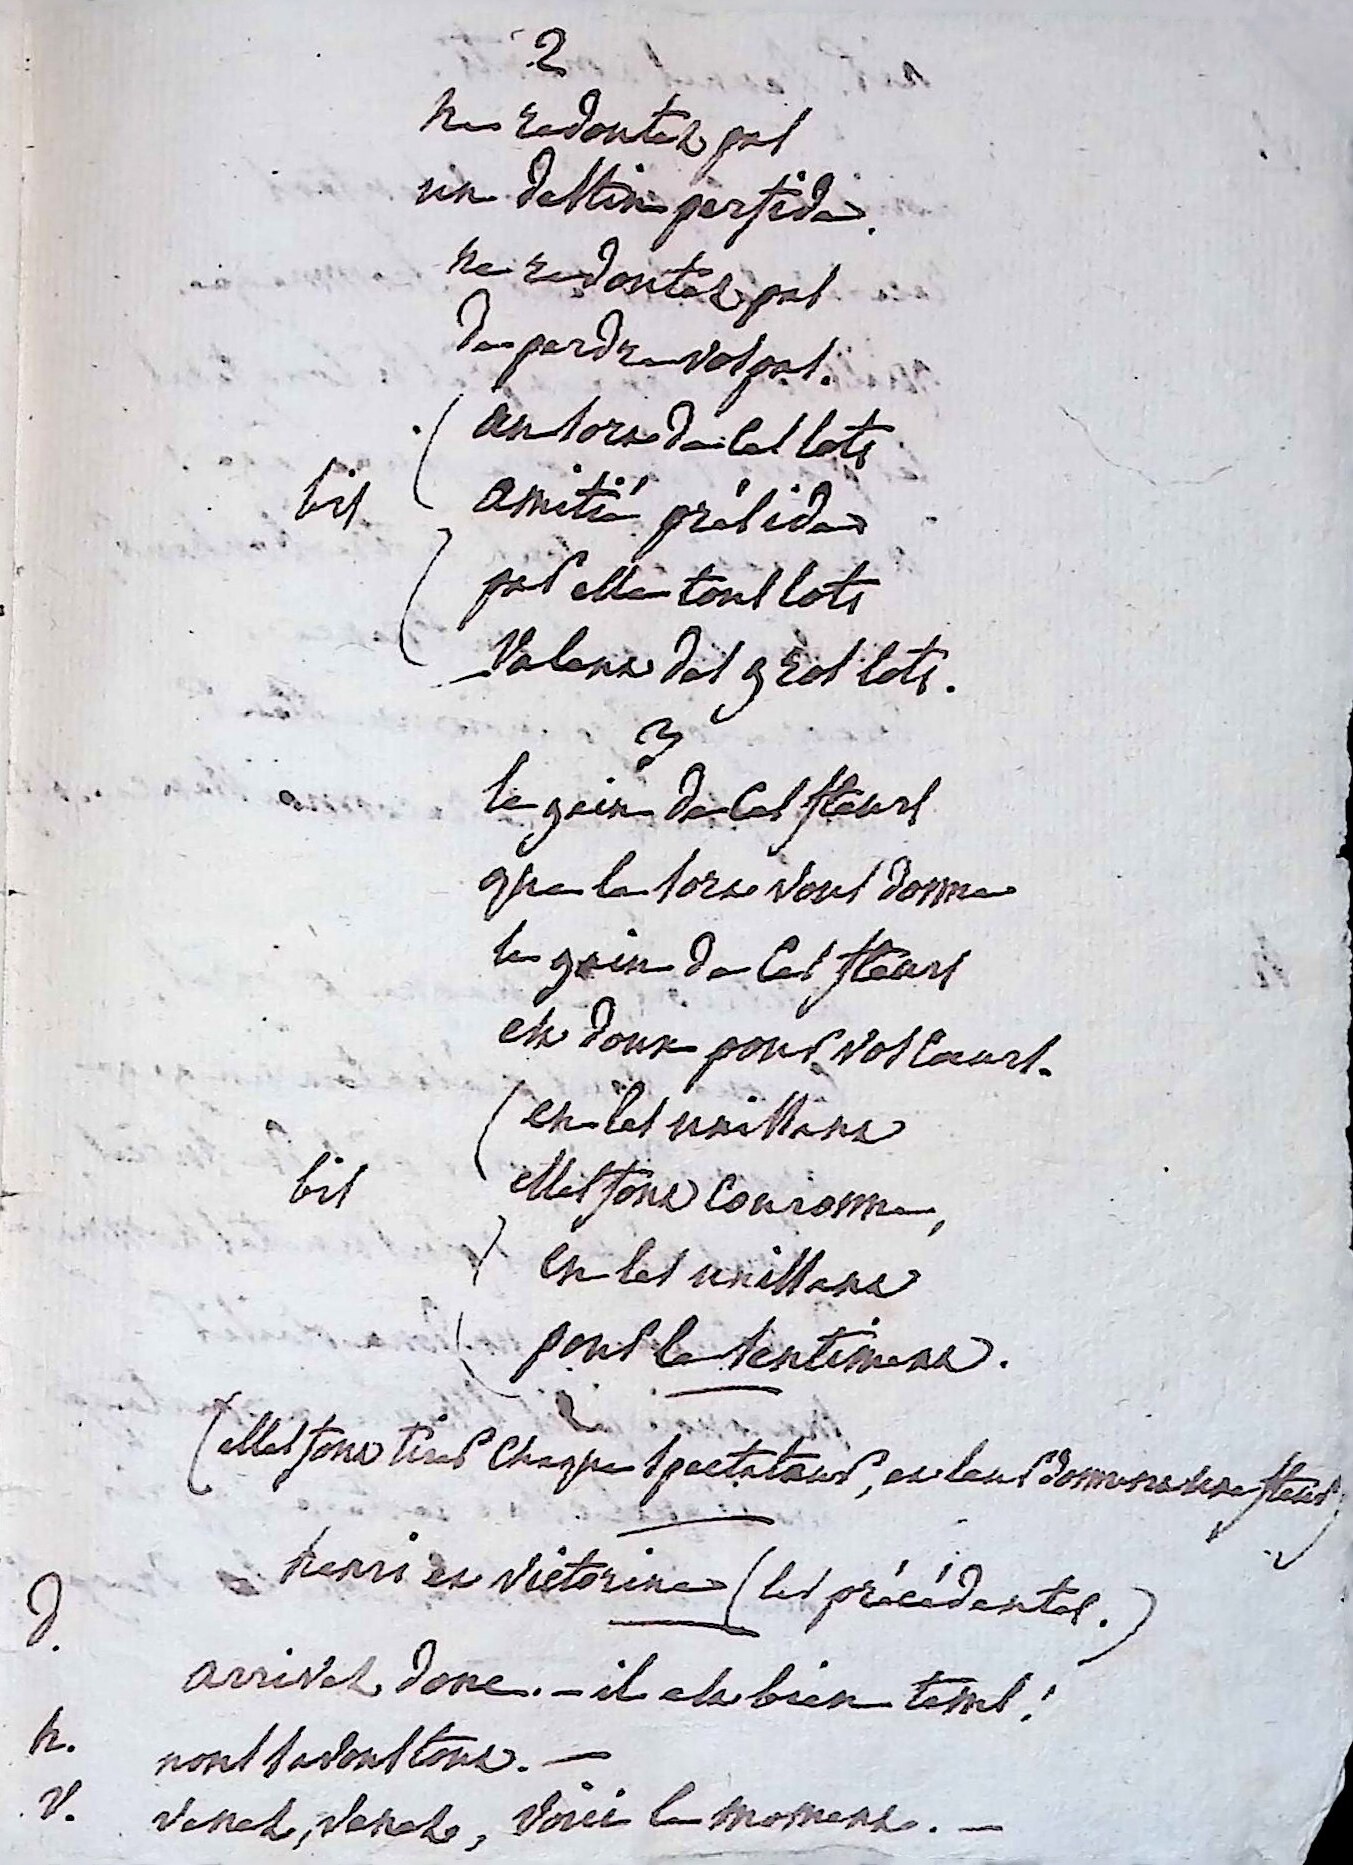 2
ne redoutez pas
un destin perfide.
ne redoutez pas
de perdre vos pas.
au sort de ces lots
bis
amitié préside
par elle tous lots
valent des gros lots.
3
le gain de ces fleurs
que le sort vous donne
le gain de ces fleurs
est doux pour vos cœurs.
en les unissant
bis
elles font couronne,
en les unissant
pour le sentiment.
(elles font tirer chaque spectateur, et leur donnent une fleur)
henri et victorine (les précédentes.)
d.
arrivez donc. - il est bien tems!
h.
nous savons tout. -
v.
venez, venez, voici le moment. -